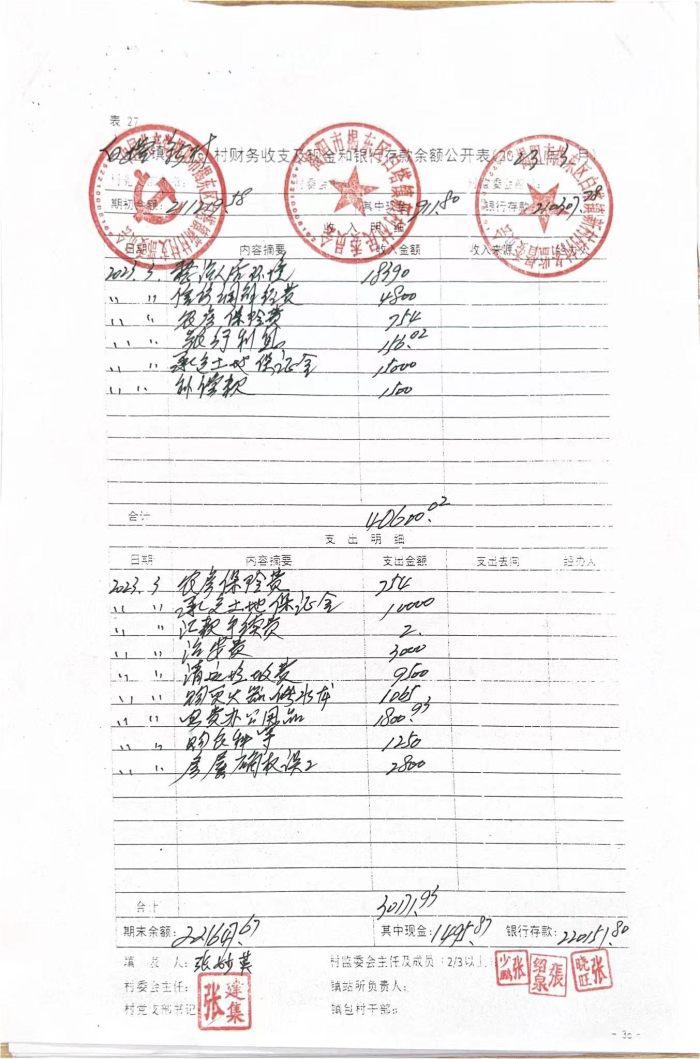 表 27
白塔镇 村财务收支及现金和银行存款余额公开表(2023 3月)
期初金额: 211219.58 其中现金: 911.80 银行存款: 210307.78
收 入 明 细
日期 内容摘要 收入金额 收入来源 经办人
2023.3. 整治人居环境 18390
〃 〃 经费 4800
〃 〃 农房保险费 754
〃 〃 银行利息 156.02
〃 〃 承包土地保证金 15000
〃 〃 补偿款 1500
合计 40600.02
支 出 明 细
日期 内容摘要 支出金额 支出去向 经办人
2023.3 农房保险费 754
〃 〃 承包土地保证金 10000
〃 〃 汇款手续费 2.
〃 〃 治安费 3000
〃 〃 清运垃圾费 9500
〃 〃 购灭火器 1065
〃 〃 电费办公用品 1800.93
〃 〃 购 种 1250
〃 〃 房屋确权误工 2800
合计 30171.93
期末余额: 221647.67 其中现金: 1495.87 银行存款: 220151.80
填 表 人: 张 英 村监委会主任及成员(2/3以上) 张少鹏 張绍泉 张晓旺
村委会主任: 张建集 镇站所负责人:
村党支部书记: 镇包村干部:
- 36 -